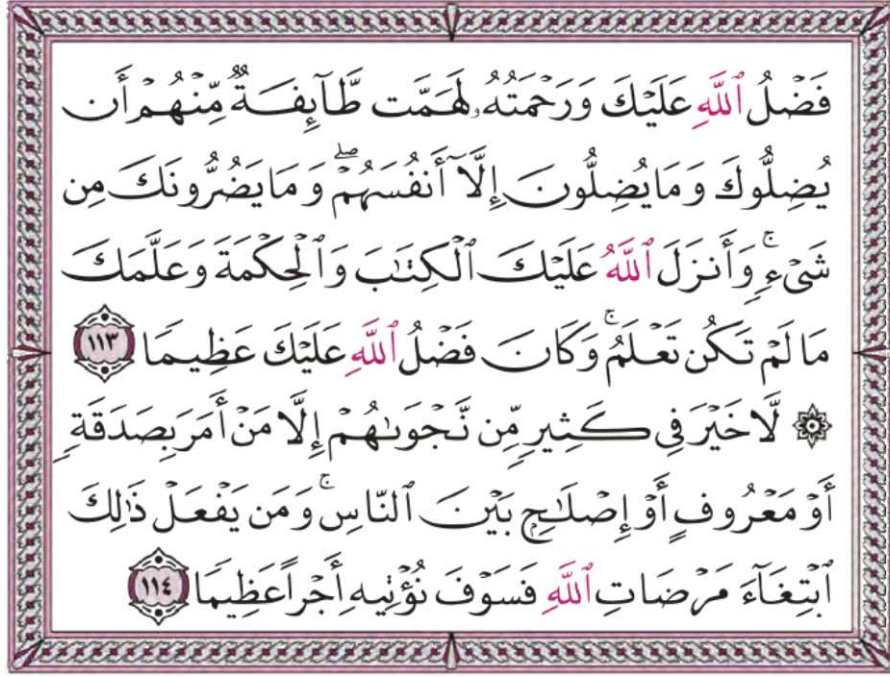 فَضۡلُ ٱللَّهِ عَلَيۡكَ وَرَحۡمَتُهُۥ لَهَمَّت طَّآئِفَةٞ مِّنۡهُمۡ أَن
يُضِلُّوكَ وَمَا يُضِلُّونَ إِلَّآ أَنفُسَهُمۡۖ وَمَا يَضُرُّونَكَ مِن
شَيۡءٖۚ وَأَنزَلَ ٱللَّهُ عَلَيۡكَ ٱلۡكِتَٰبَ وَٱلۡحِكۡمَةَ وَعَلَّمَكَ
مَا لَمۡ تَكُن تَعۡلَمُۚ وَكَانَ فَضۡلُ ٱللَّهِ عَلَيۡكَ عَظِيمٗا ١١٣
۞ لَّا خَيۡرَ فِي كَثِيرٖ مِّن نَّجۡوَىٰهُمۡ إِلَّا مَنۡ أَمَرَ بِصَدَقَةٍ
أَوۡ مَعۡرُوفٍ أَوۡ إِصۡلَٰحِۭ بَيۡنَ ٱلنَّاسِۚ وَمَن يَفۡعَلۡ ذَٰلِكَ
ٱبۡتِغَآءَ مَرۡضَاتِ ٱللَّهِ فَسَوۡفَ نُؤۡتِيهِ أَجۡرًا عَظِيمٗا ١١٤